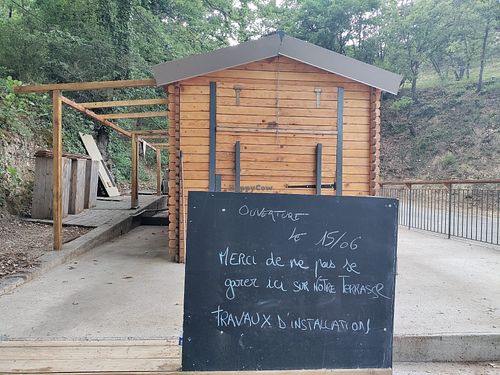 HappyCow
OUVERTURE
LE 15/06
MERCI de ne pas se
garer ici SUR NOTRE TERRASSE
TRAVAUX D'INSTALLATION